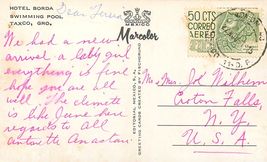 HOTEL BORDA
SWIMMING POOL
TAXCO, GRO.
MEXICO
Marcolor
50 CTS
CORREO
AEREO
Dear
We had a new
arrival a baby girl
everything is fine
hope you are all
well. The climate
is like June here
regards to all
Mr. & Mrs. Jos Wilhelm
Croton Falls,
N. Y.
U. S. A.